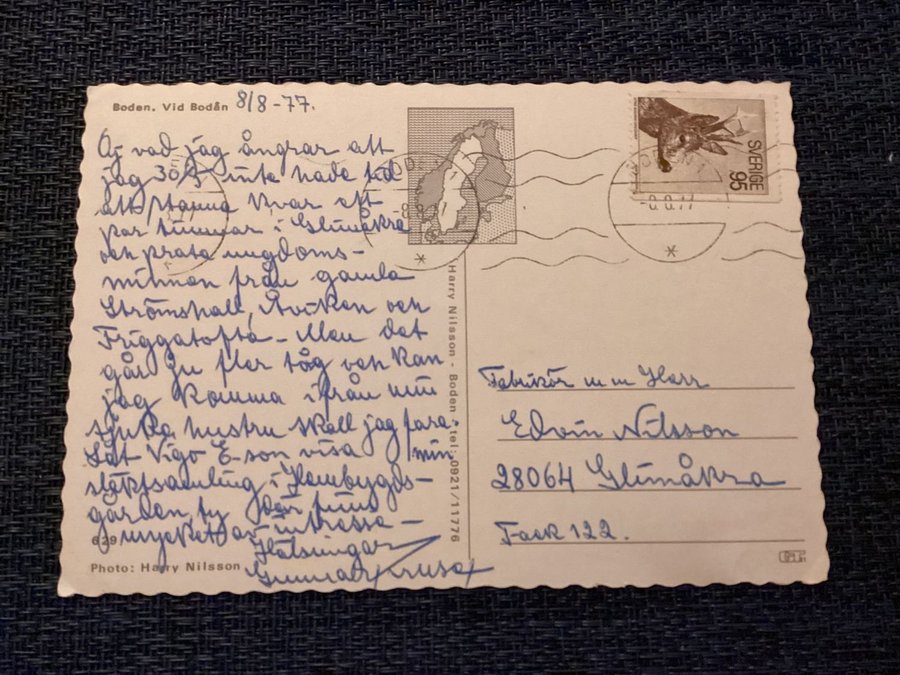 Boden. Vid Bodån 8/8-77.
Oj vad jag ångrar att
jag 30/5 inte hade tid
att stanna kvar ett
par timmar i Glimåkra
och prata ungdoms-
minnen från gamla
Strömshall, Åviken och
Friggatofta - Men det
går ju fler tåg och kan
jag komma ifrån min
sjuka hustru skall jag fara.
Låt Vigo E-son visa min
släktsamling i Hembygds-
gården ty där finns
mycket av intresse -
Hälsningar
Gunnar
629
Photo: Harry Nilsson
Harry Nilsson - Boden tel. 0921/11776
SVERIGE
95
Fabrikör m m Herr
Edvin Nilsson
28064 Glimåkra
Fack 122.